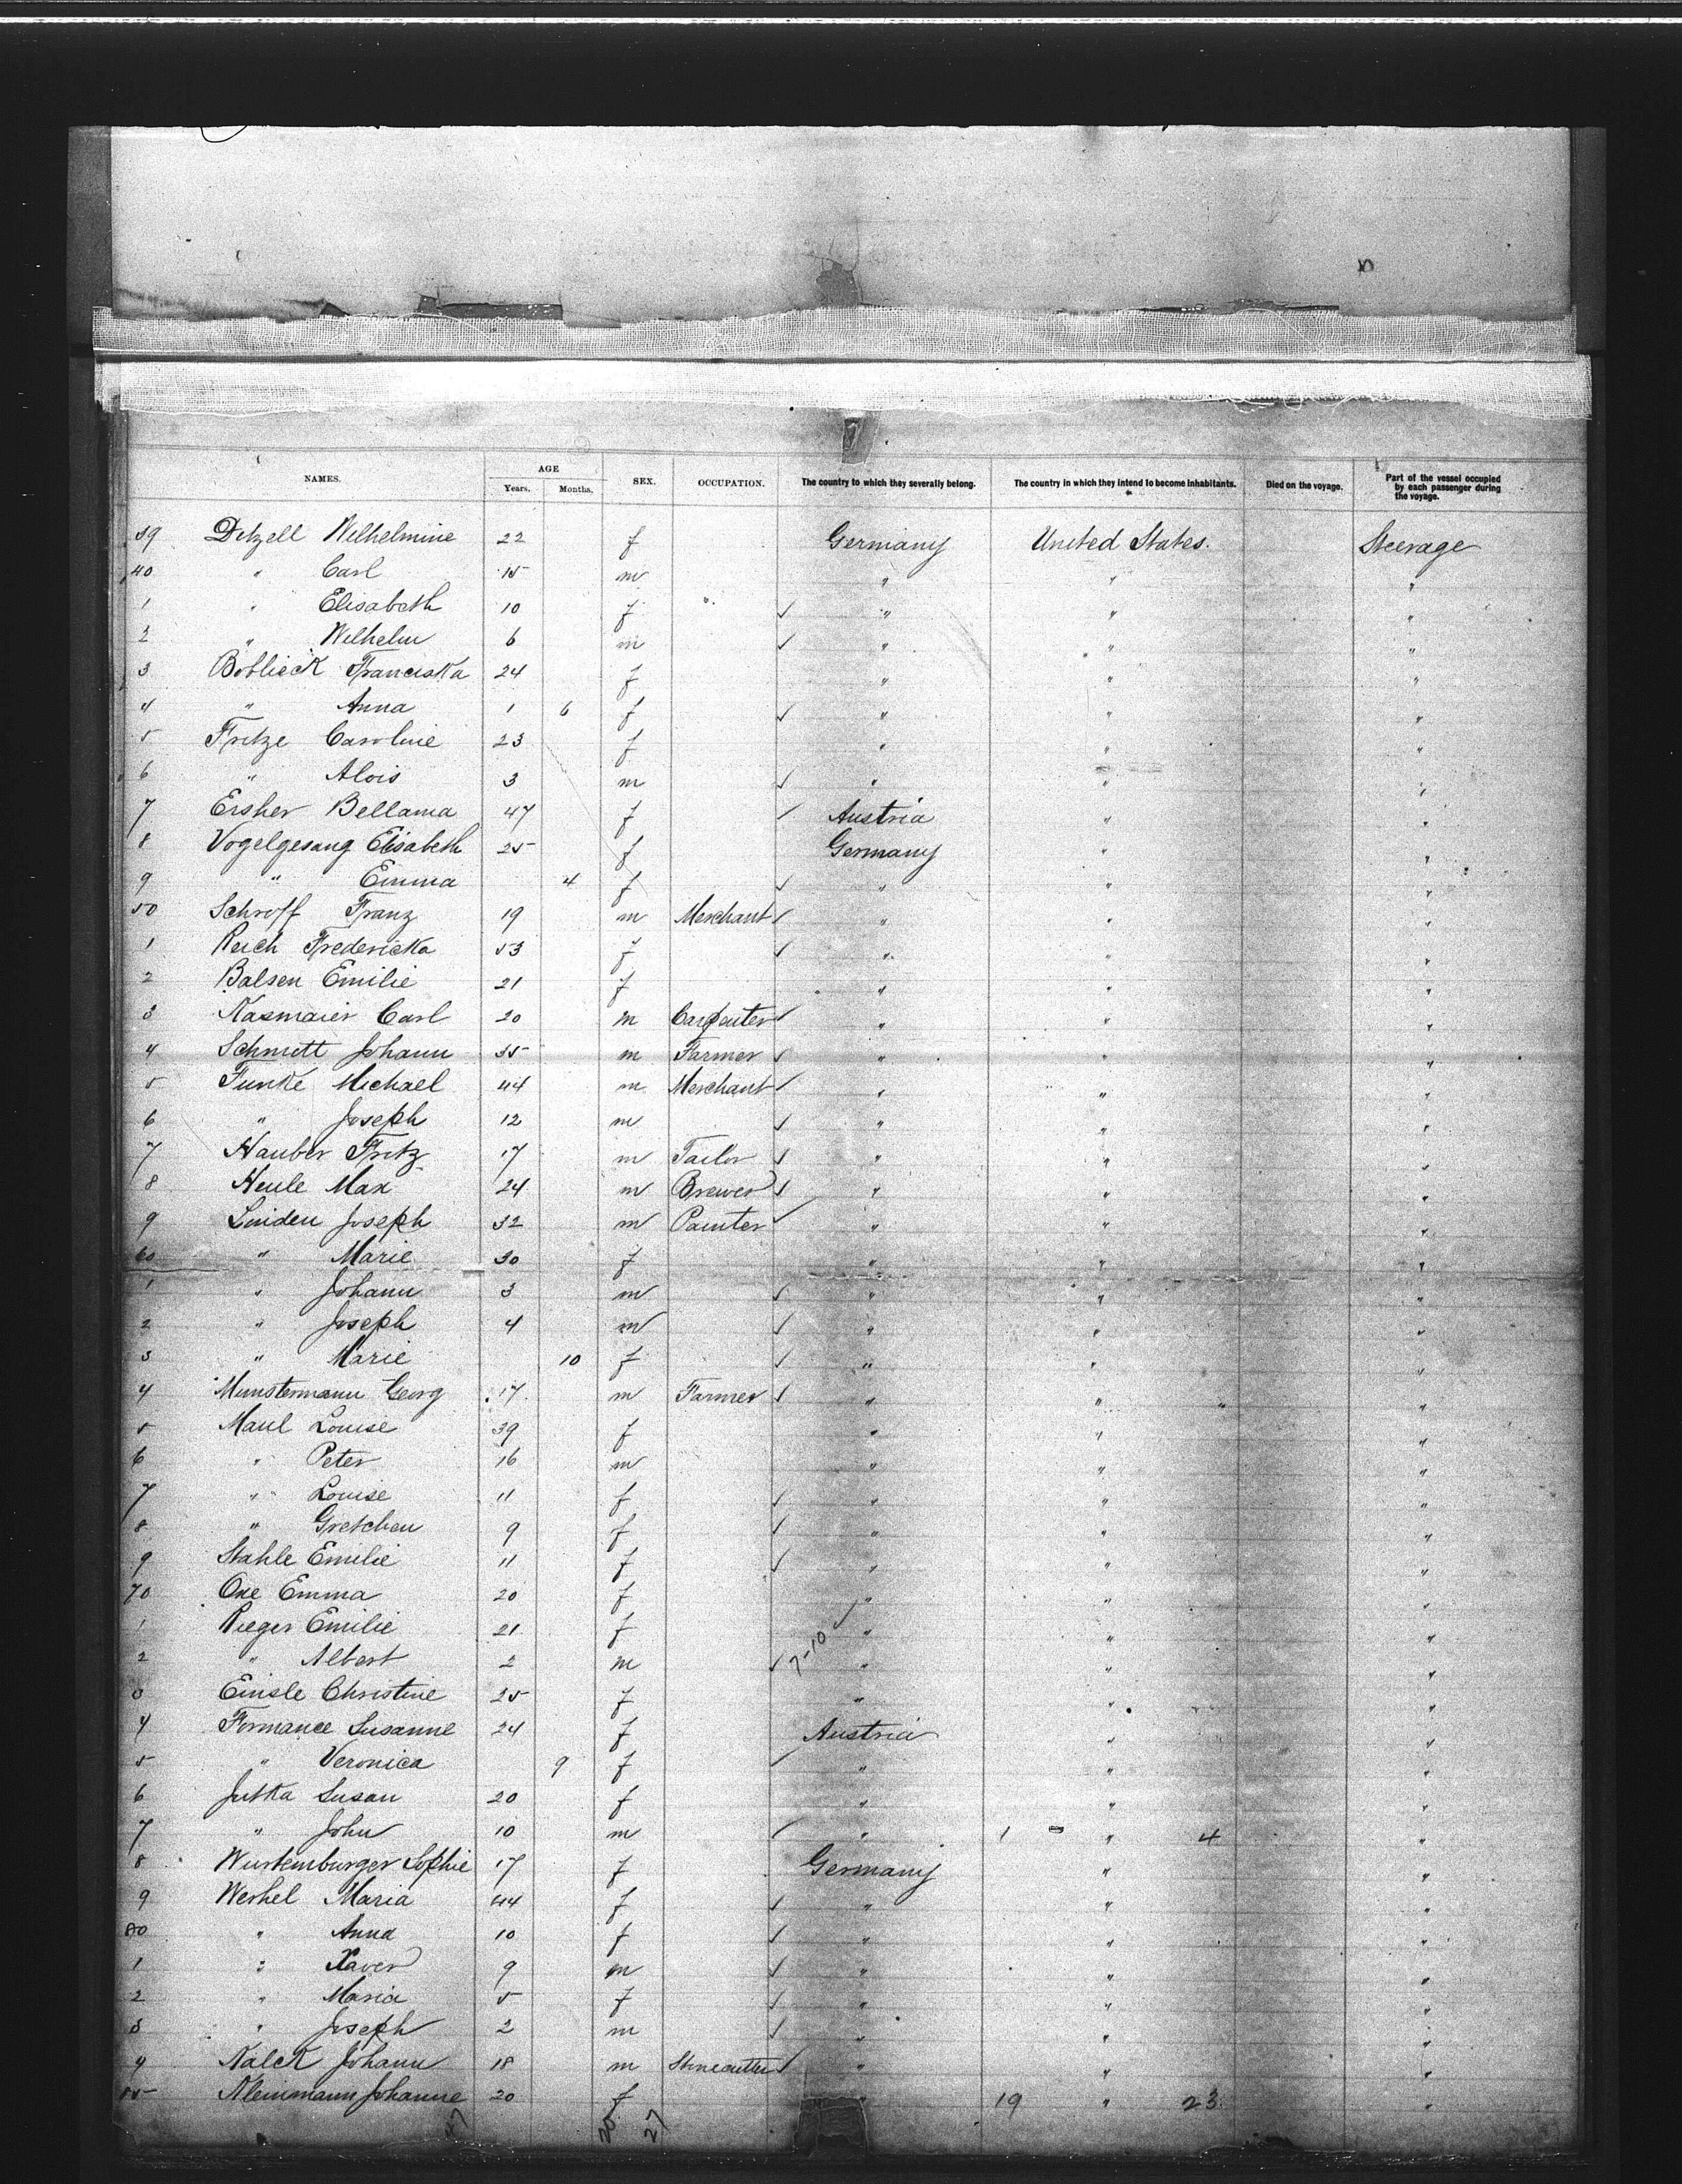 NAMES. AGE Years. Months. SEX. OCCUPATION. The country to which they severally belong. The country in which they intend to become inhabitants. Died on the voyage. Part of the vessel occupied by each passenger during the voyage.
39 Ditzell Wilhelmine 22 f Germany United States. Steerage
40 " Carl 15 m " " "
1 " Elisabeth 10 f " " "
2 " Wilhelm 6 m " " "
3 Boblieck Franciska 24 f " " "
4 " Anna 1 6 f " " "
5 Fritze Caroline 23 f " " "
6 " Alois 3 m " " "
7 Ersher Bellama 47 f Austria " "
8 Vogelgesang Elisabeth 25 f Germany " "
9 " Emma 4 f " " "
50 Schroff Franz 19 m Merchant " " "
1 Reich Fredericka 53 f " " "
2 Balsen Emilie 21 f " " "
3 Kasmaier Carl 20 m Carpenter " " "
4 Schmitt Johann 35 m Farmer " " "
5 Funke Michael 44 m Merchant " " "
6 " Joseph 12 m " " "
7 Hauber Fritz 17 m Tailor " " "
8 Heule Max 24 m Brewer " " "
9 Linden Joseph 32 m Painter " " "
60 " Marie 30 f " " "
1 " Johann 3 m " " "
2 " Joseph 4 m " " "
3 " Marie 10 f " " "
4 Munstermann Georg 17 m Farmer " " "
5 Maul Louise 39 f " " "
6 " Peter 16 m " " "
7 " Louise 11 f " " "
8 " Gretchen 9 f " " "
9 Stahle Emilie 11 f " " "
70 Oxe Emma 20 f " " "
1 Rieger Emilie 21 f " " "
2 " Albert 2 m 7-10 " " "
3 Einsle Christine 25 f " " "
4 Formance Susanne 24 f Austria " "
5 " Veronica 9 f " " "
6 Jutka Susan 20 f " " "
7 " John 10 m " 1 - " 4 "
8 Wurtemburger Sophie 17 f Germany " "
9 Werhel Maria 44 f " " "
80 " Anna 10 f " " "
1 " Xaver 9 m " " "
2 " Maria 5 f " " "
3 " Joseph 2 m " " "
4 Kalck Johann 18 m Stonecutter " " "
85 Kleinmann Johanne 20 f " 19 " 23 "
47 20 27